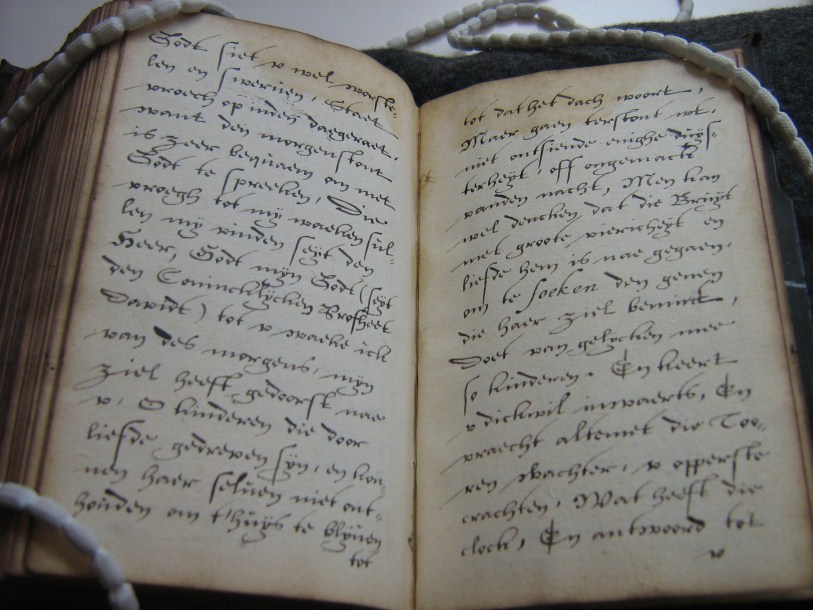 Godt siet v wel worste-
len en swermen, Staet
vroech op inden daegeraet,
want den morgenstont
is zeer bequaem om met
Godt te spreeken, Die
vroegh tot my waeken sul-
len my vinden seyt den
Heer, Godt myn Godt (seyt
den Conincklycken Propheet
Davidt) tot v waeke ick
van des morgens, myn
ziel heeft gedoorst nae
v. O kinderen die door
liefde gedreven syn, en kon-
nen haer seluen niet ont-
houden om t'huys te blyuen
tot
tot dat het dach woort,
Maer gaen terstont wt,
niet ontsiende enighe duys-
terheyt, off ongemack
vanden nacht, Men kan
wel dencken dat die Bruyt
met groote viericheyt en
liefde hem is nae gegaen,
om te soeken den genen
die haer ziel bemint,
Doet van gelycken mee
so kinderen. En keert
v dickwil inwaerts, En
vraecht altemet die Too-
ren wachter, v opperste
crachten, Wat heeft die
clock, En antwoord tot
v